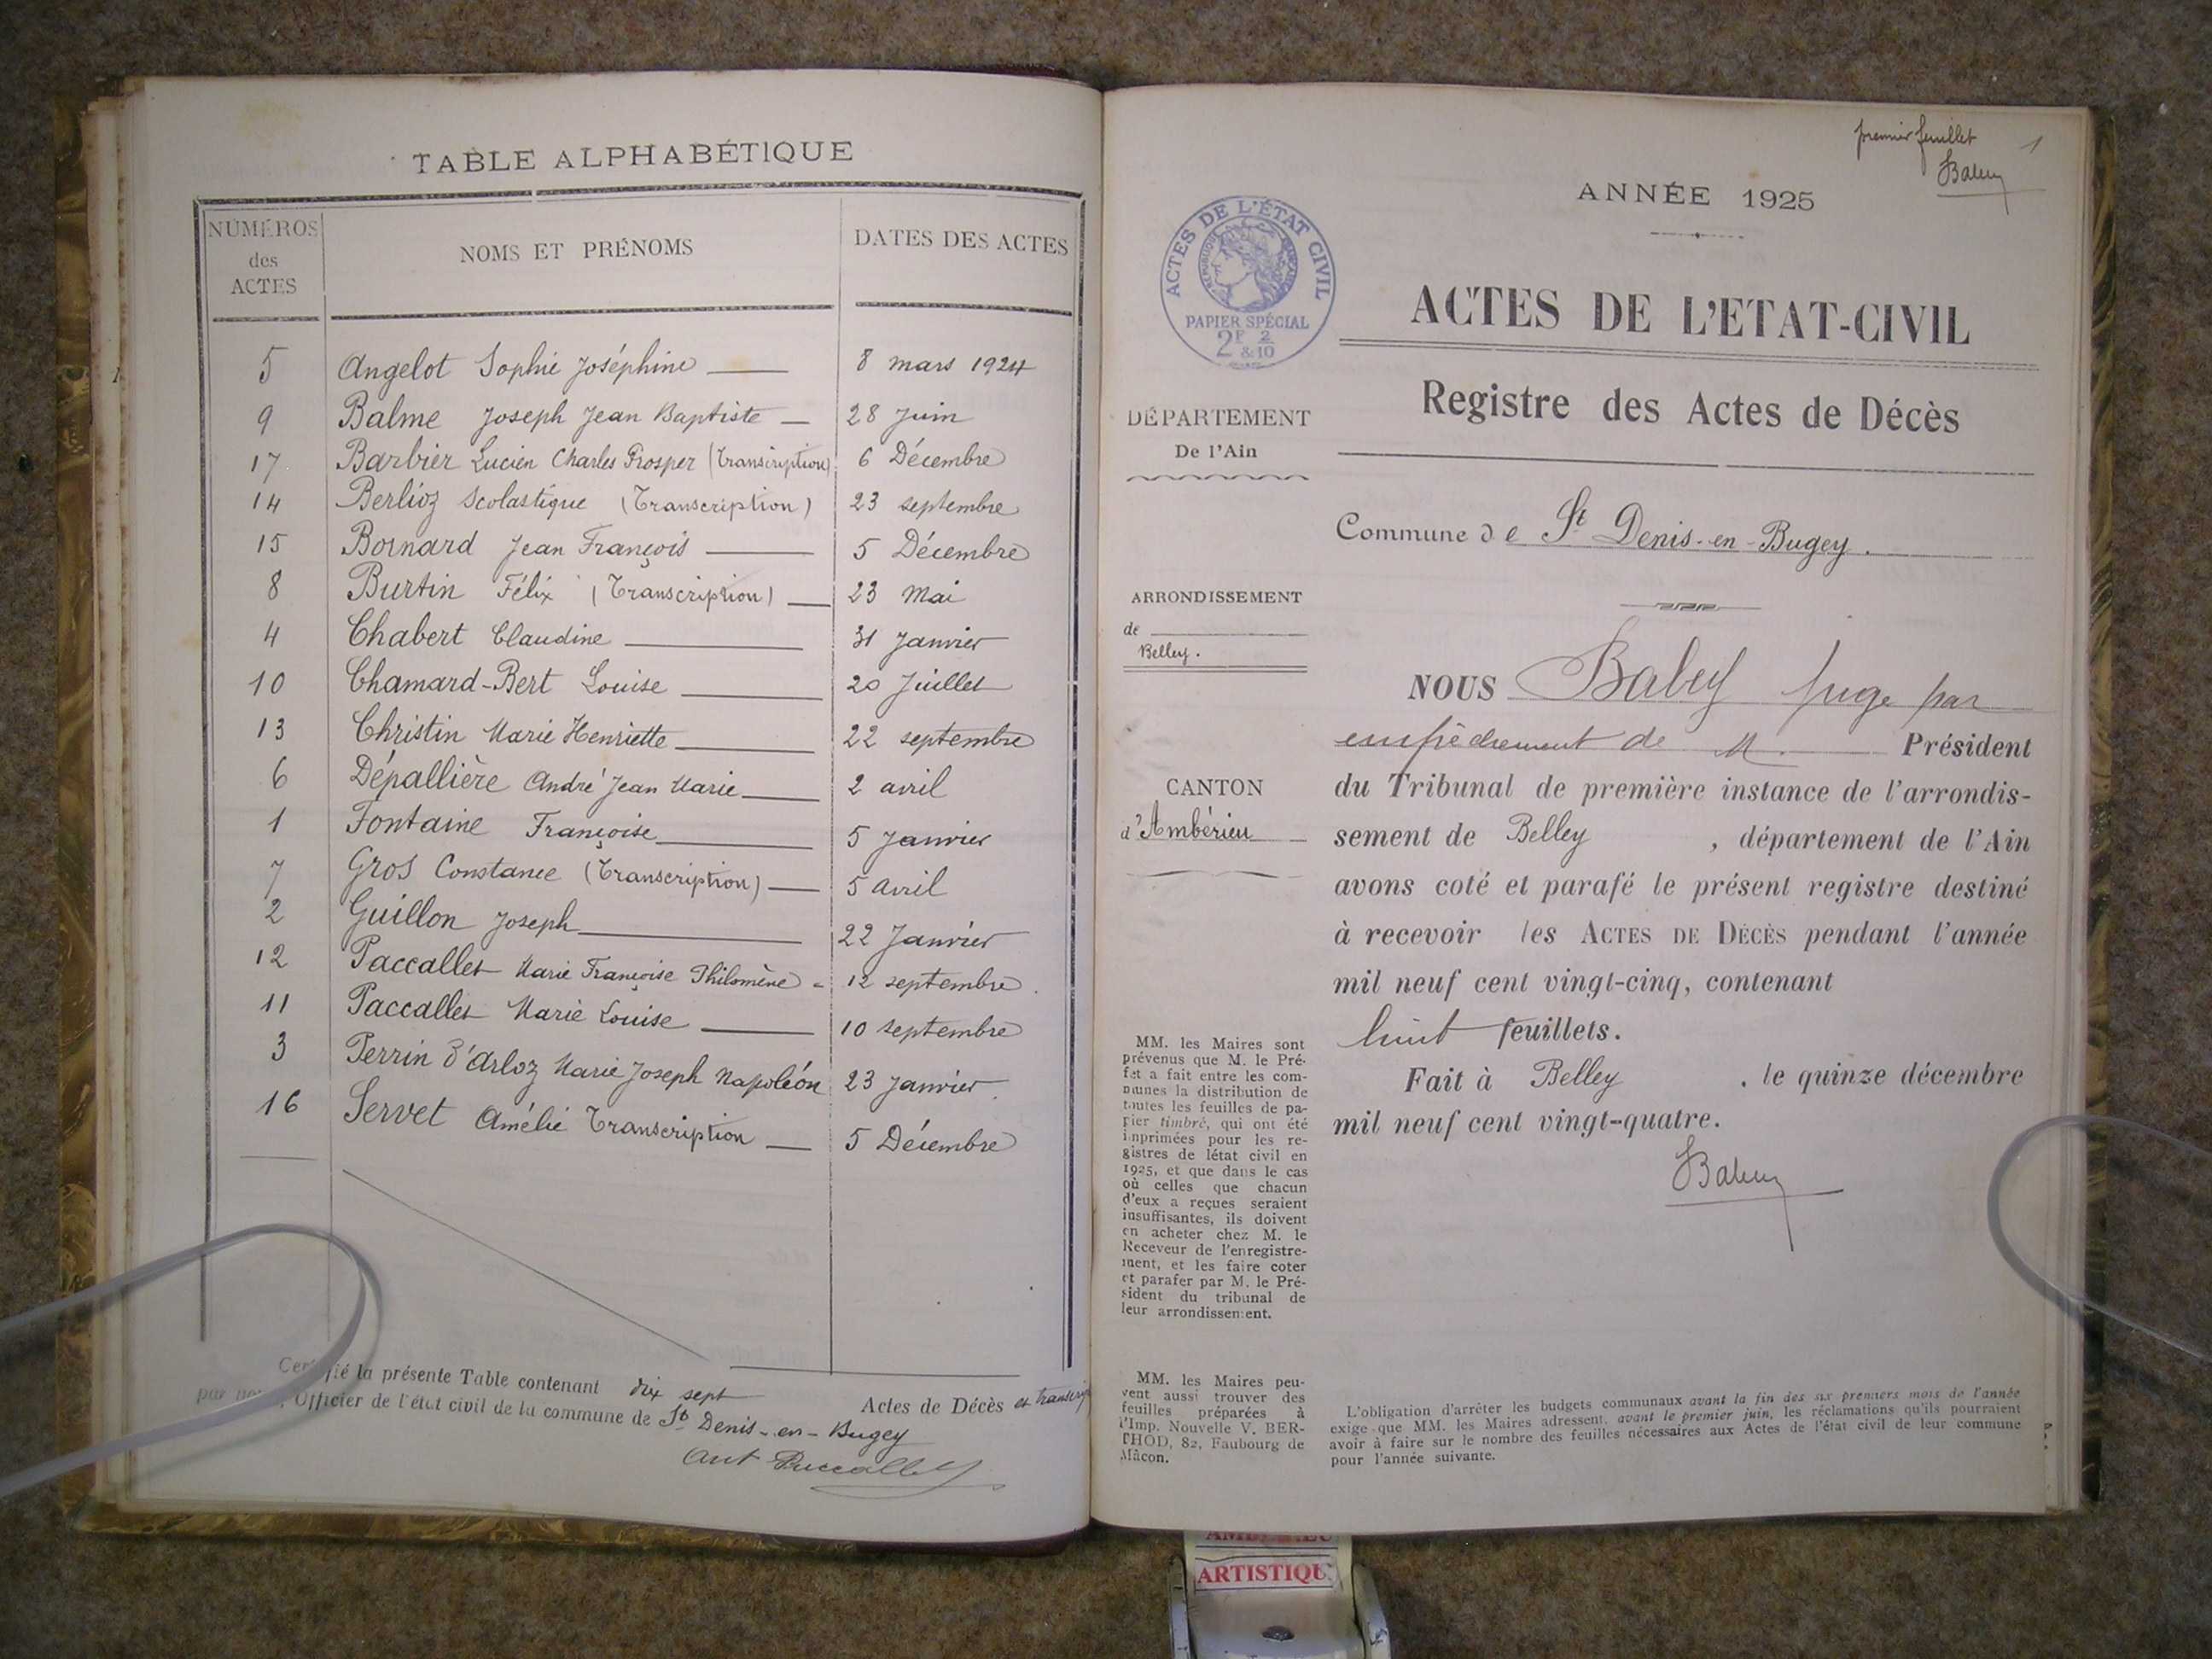 TABLE ALPHABÉTIQUE
NUMÉROS des ACTES NOMS ET PRÉNOMS DATES DES ACTES
5 Angelot Sophie Joséphine 8 mars 1924
9 Balme Joseph Jean Baptiste 28 Juin
17 Barbier Lucien Charles Prosper (Transcription) 6 Décembre
14 Berlioz Scolastique (Transcription) 23 septembre
15 Bornard Jean François 5 Décembre
8 Burtin Félix (Transcription) 23 Mai
4 Chabert Claudine 31 Janvier
10 Chamard-Bert Louise 20 Juillet
13 Christin Marie Henriette 22 septembre
6 Dépallière André Jean Marie 2 avril
1 Fontaine Françoise 5 Janvier
7 Gros Constance (Transcription) 5 avril
2 Guillon Joseph 22 Janvier
12 Paccallet Marie Françoise Philomène 12 septembre
11 Paccallet Marie Louise 10 septembre
3 Perrin d'Arloz Marie Joseph Napoléon 23 Janvier
16 Servet Amélie Transcription 5 Décembre
la présente Table contenant dix sept Actes de Décès et transcrip
Officier de l'état civil de la commune de St Denis-en-Bugey
Ant Paccallet
premier feuillet 1
Babey
ANNÉE 1925
ACTES DE L'ÉTAT CIVIL
RÉPUBLIQUE FRANÇAISE
PAPIER SPÉCIAL
2F 2
&10
ACTES DE L'ETAT-CIVIL
Registre des Actes de Décès
DÉPARTEMENT
De l'Ain
Commune de St Denis-en-Bugey.
ARRONDISSEMENT
de
Belley.
CANTON
d'Ambérieu
NOUS Babey Juge par
empêchement de M. Président
du Tribunal de première instance de l'arrondis-
sement de Belley, département de l'Ain
avons coté et parafé le présent registre destiné
à recevoir les ACTES DE DÉCÈS pendant l'année
mil neuf cent vingt-cinq, contenant
huit feuillets.
Fait à Belley, le quinze décembre
mil neuf cent vingt-quatre.
Babey
MM. les Maires sont
prévenus que M. le Pré-
fet a fait entre les com-
munes la distribution de
toutes les feuilles de pa-
pier timbré, qui ont été
imprimées pour les re-
gistres de létat civil en
1925, et que dans le cas
où celles que chacun
d'eux a reçues seraient
insuffisantes, ils doivent
en acheter chez M. le
Receveur de l'enregistre-
ment, et les faire coter
et parafer par M. le Pré-
sident du tribunal de
leur arrondissement.
MM. les Maires peu-
vent aussi trouver des
feuilles préparées à
l'Imp. Nouvelle V. BER-
THOD, 82, Faubourg de
Mâcon.
L'obligation d'arrêter les budgets communaux avant la fin des six premiers mois de l'année
exige que MM. les Maires adressent, avant le premier juin, les réclamations qu'ils pourraient
avoir à faire sur le nombre des feuilles nécessaires aux Actes de l'état civil de leur commune
pour l'année suivante.
ARTISTIQU